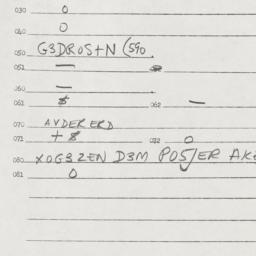 030 0
040 0
050 G3DROS+N (590
051 —
060 —
061 $ 062 —
070 AVDERERD
071 + 8 072 0
080 XOG3ZEN D3M POS/ER AK
081 0